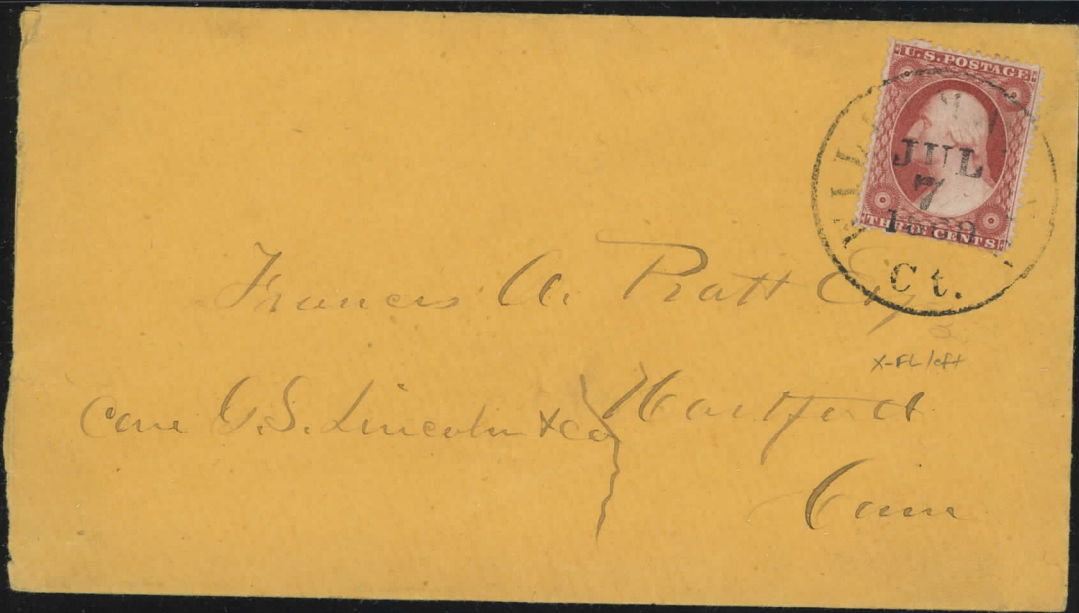 U.S. POSTAGE
JUL
7
THREE CENTS
Ct.
Francis A. Pratt Esq
x-FL left
Care G. S. Lincoln & Co
Hartford
Conn